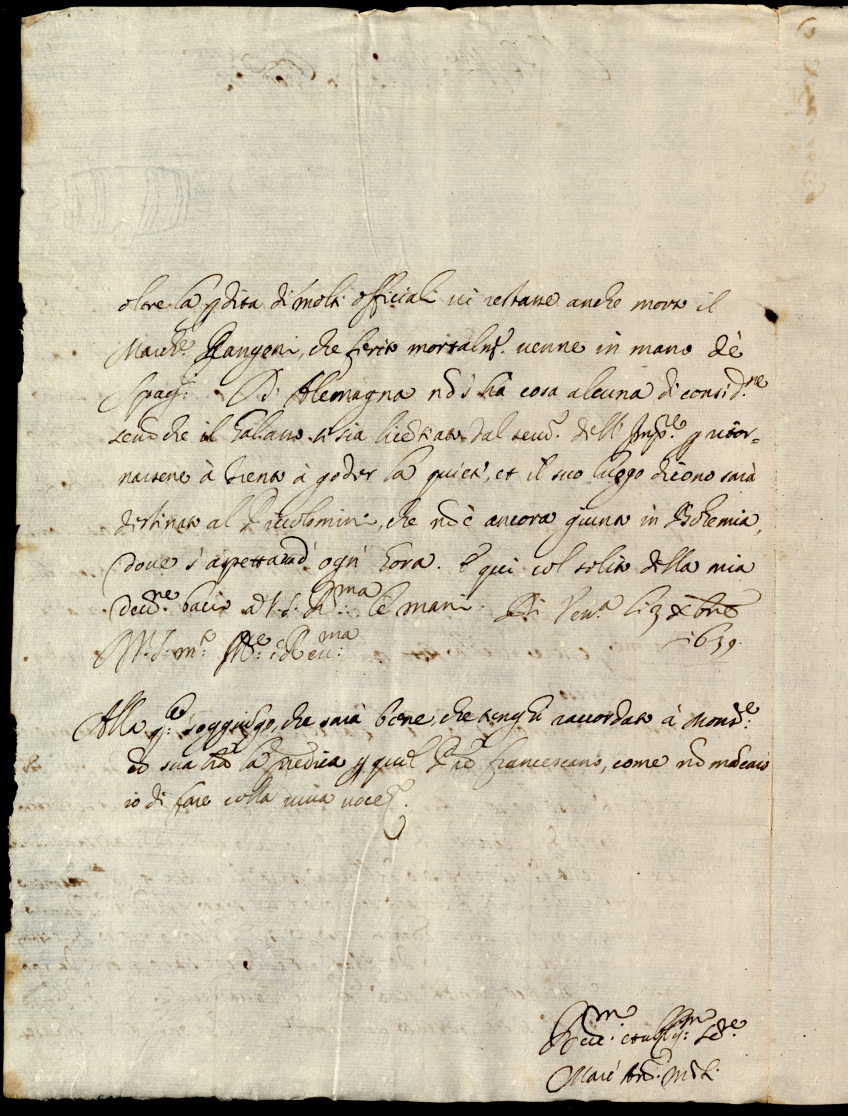 oltre la pdita di molti officiali ui restasse anche morto il
March.e Rangoni, che ferito mortalm.te uenne in mano de
Spag.li Di Alemagna nō s'hà cosa alcuna di consid.ne
senō che il Galasso si sia licētiato dal seru.o dell' Imp.re p ritor=
narsene à Trento à goder la quiete, et il suo luogo dicono sarà
destinato al Piccolomini, che nō è ancora giunto in Bohemia,
doue s'aspettaua d' ogn' hora. E qui col solito della mia
deuo.ne bacio à V.S. Ill.ma le mani. Di Ven.a li 3 Xbre
1639.
Alla q.le soggiūgo, che sarà bene, che tenghi raccordato à Mons.re
la p̄dica p quel Pre francescano, come nō mācarò
io di fare colla uiua uoce.
Marc' Ant.o